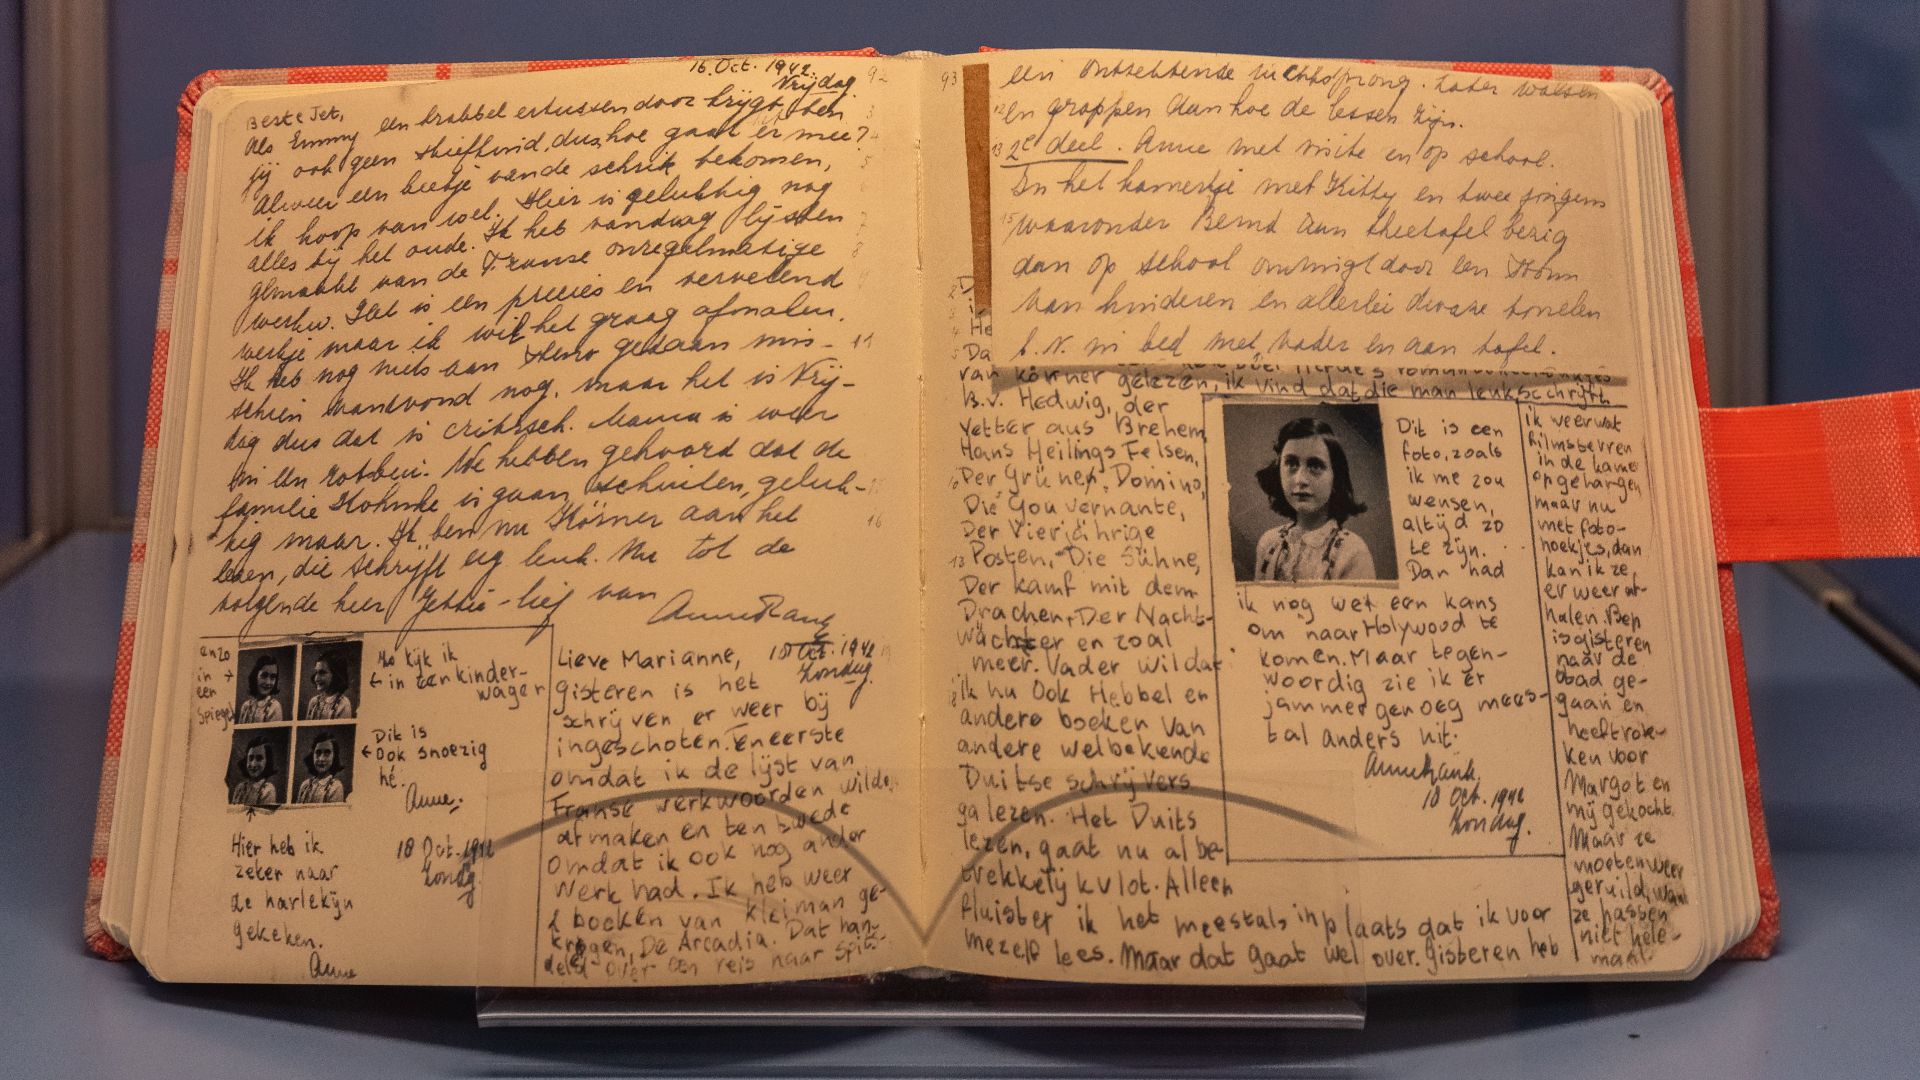 16. Oct. 1942.
Vrijdag.
92
Beste Jet,
Als Emmy een krabbel ertussendoor krijgt, ben
jij ook geen stiefkind, dus hoe gaat er mee?
Alweer een beetje van de schrik bekomen,
ik hoop van wel. Hier is gelukkig nog
alles bij het oude. Ik heb vandaag lijsten
gemaakt van de Franse onregelmatige
werkw. Het is een precies en vervelend
werkje maar ik wil het graag afmaken.
Ik heb nog niets aan Steno gedaan mis-
schien vanavond nog, maar het is Vrij-
dag dus dat is critisch. Mama is weer
in en
We hebben gehoord dat de
familie is gaan schuilen, geluk-
kig maar. Ik ben nu Körner aan het
lezen, die schrijft erg leuk. Nu tot de
volgende keer Jettie-lief van
Anne Frank
enzo
in →
een
spiegel
Ho kijk ik
← in een kinder-
wagen
Dit is
← Ook snoezig
hé.
Anne.
Hier heb ik
zeker naar
de harlekijn
gekeken.
Anne
18 Oct. 1942
Zondag.
Lieve Marianne,
18 Oct. 1942
Zondag.
gisteren is het
schrijven er weer bij
ingeschoten. Ten eerste
omdat ik de lijst van
Franse werkwoorden wilde
afmaken en ten twede
omdat ik ook nog ander
werk had. Ik heb weer
2 boeken van Kleiman ge-
kregen, De Arcadia. Dat han-
deld over een reis naar Spits-
93
een ontzettende luchtsprong. Later walsen
en grappen dan hoe de lessen zijn.
2e deel. Anne met visite en op school.
In het kamertje met Kitty en twee jongens
waaronder Bernd aan theetafel bezig
dan op school omringt door een
van kinderen en allerlei dwaze tonelen
b.v. in bed met vader en aan tafel.
van Körner gelezen, ik vind dat die man leuk schrijft.
B.v. Hedwig, der
Vetter aus Brehem,
Hans Heilings Felsen,
Der Grünen Domino,
Die Gouvernante,
Der Vierjährige
Posten, Die Sühne,
Der kamf mit dem
Drachen, Der Nacht-
wächter en zoal
meer. Vader wil dat
ik nu ook Hebbel en
andere boeken van
andere welbekende
Duitse schrijvers
ga lezen. Het Duits
lezen, gaat nu al be-
trekkelijk vlot. Alleen
fluister ik het meestal, in plaats dat ik voor
mezelf lees. Maar dat gaat wel over. Gisteren heb
Dit is een
foto, zoals
ik me zou
wensen,
altijd zo
te zijn.
Dan had
ik nog wel een kans
om naar Holywood te
komen. Maar tegen-
woordig zie ik er
jammer genoeg mees-
tal anders uit.
Anne Frank.
18 Oct. 1942
Zondag.
ik weer wat
filmsterren
in de kamer
opgehangen
maar nu
met foto-
hoekjes, dan
kan ik ze,
er weer af-
halen. Bep
is gisteren
naar de
stad ge-
gaan en
heeft rok-
ken voor
Margot en
mij gekocht.
Maar ze
moeten weer
geruild, want
ze passen
niet hele-
maal.